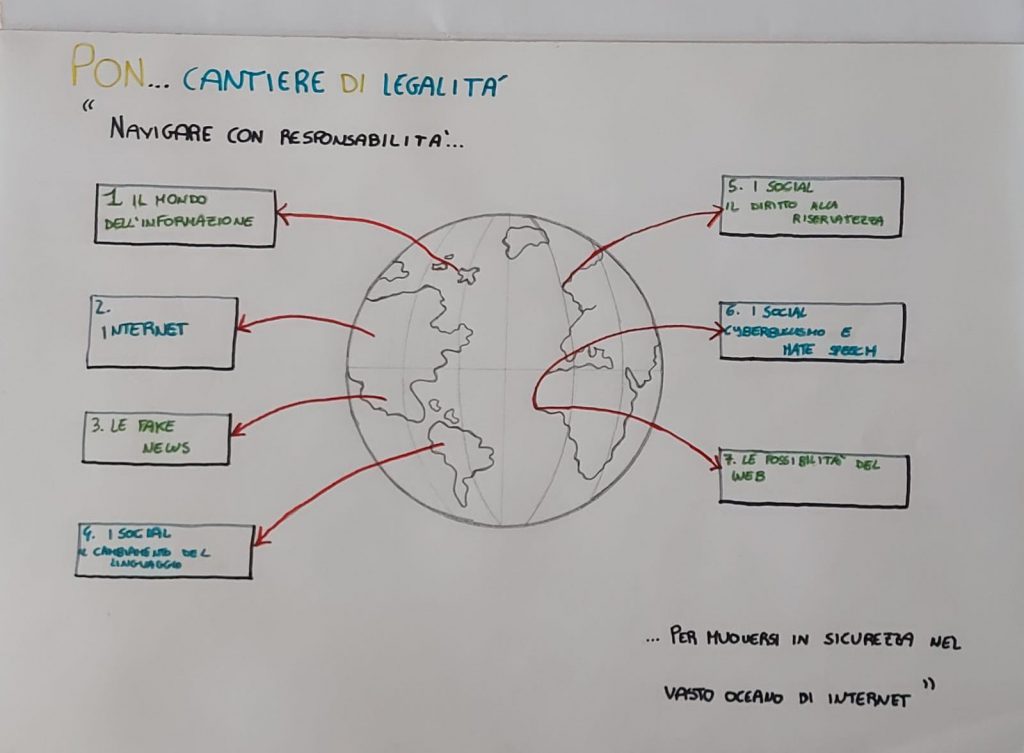 PON... CANTIERE DI LEGALITÀ
“ NAVIGARE CON RESPONSABILITÀ...
1 IL MONDO
DELL'INFORMAZIONE
2.
INTERNET
3. LE FAKE
NEWS
4. I SOCIAL
IL CAMBIAMENTO DEL
LINGUAGGIO
5. I SOCIAL
IL DIRITTO ALLA
RISERVATEZZA
6. I SOCIAL
CYBERBULLISMO E
HATE SPEECH
7. LE POSSIBILITÀ DEL
WEB
... PER MUOVERSI IN SICUREZZA NEL
VASTO OCEANO DI INTERNET ”